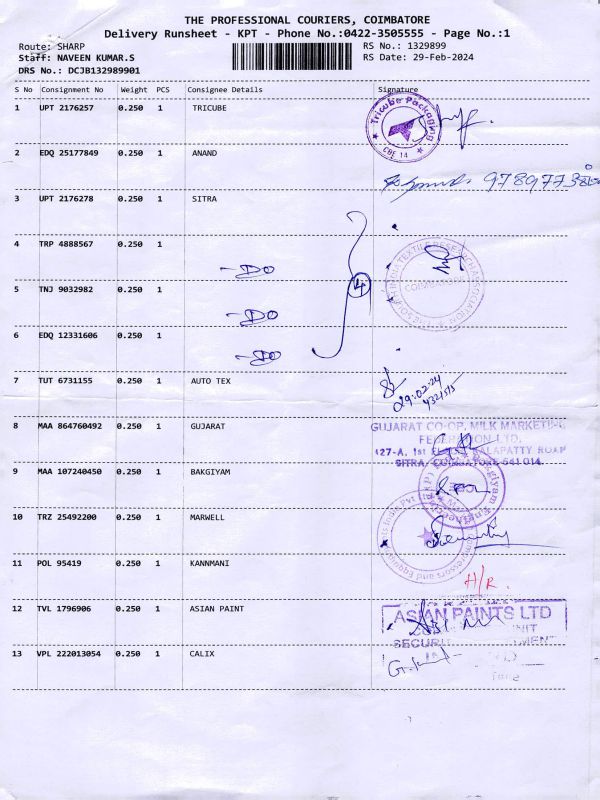 THE PROFESSIONAL COURIERS, COIMBATORE
Delivery Runsheet - KPT - Phone No.:0422-3505555 - Page No.:1
Route: SHARP
RS No.: 1329899
Staff: NAVEEN KUMAR.S
RS Date: 29-Feb-2024
DRS No.: DCJB132989901
S No Consignment No Weight PCS Consignee Details Signature
1 UPT 2176257 0.250 1 TRICUBE
Tricube Packaging
CBE 14
2 EDQ 25177849 0.250 1 ANAND
3 UPT 2176278 0.250 1 SITRA
4 TRP 4888567 0.250 1
-DO
5 TNJ 9032982 0.250 1
4
-DO
6 EDQ 12331606 0.250 1
-DO
7 TUT 6731155 0.250 1 AUTO TEX
29.02.24
8 MAA 864760492 0.250 1 GUJARAT
GUJARAT CO-OP. MILK MARKETING
FEDERATION LTD.
SITRA, COIMBATORE-641 014.
9 MAA 107240450 0.250 1 BAKGIYAM
10 TRZ 25492200 0.250 1 MARWELL
11 POL 95419 0.250 1 KANNMANI
H/R.
12 TVL 1796906 0.250 1 ASIAN PAINT
ASIAN PAINTS LTD
13 VPL 222013054 0.250 1 CALIX